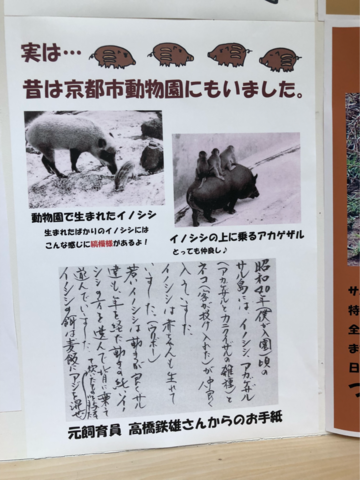 実は…
昔は京都市動物園にもいました。
動物園で生まれたイノシシ
生まれたばかりのイノシシには
こんな感じに縞模様があるよ！
イノシシの上に乗るアカゲザル
とっても仲良し♪
昭和40年後入園頃の
サル島には、イノシシ、アカゲザル
(アカゲザルとカニクイザルの雑種)と
ネコ(客が投げ入れた)が仲良く
入っていました。
イノシシは赤ちゃんも生れて
いました。(ウリボー)
若いイノシシは動きが早く、サル
達も、年を経た動きの鈍いイノ
シシの方を選んで背に乗って
遊んでいました。
イノシシの餌は麦飯にアジを混ぜ
元飼育員 高橋鉄雄さんからのお手紙
サ
特
全
ま
日